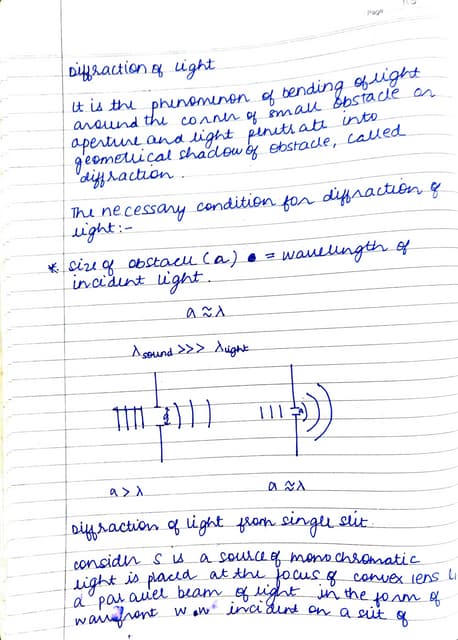 Page
Diffraction of light
It is the phenomenon of bending of light
around the corner of small obstacle or
aperture and light penetrate into
geometrical shadow of obstacle, called
diffraction.
The necessary condition for diffraction of
light:-
* size of obstacle (a) = wavelength of
incident light.
a ≈ λ
λ sound >>> λ light
a
a
a > λ
a ≈ λ
Diffraction of light from single slit.
consider S is a source of monochromatic
light is placed at the focus of convex lens
a parallel beam of light in the form of
wavefront incident on a slit of